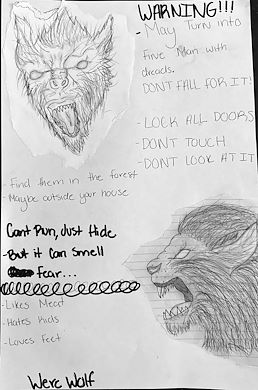 WARNING!!!
- May Turn into
Fine Man with
dreads.
DONT FALL FOR IT!
- LOCK ALL DOORS
- DONT TOUCH
- DONT LOOK AT IT
- Find them in the forest
- Maybe outside your house
Cant Run, Just Hide
- But it can Smell
fear...
- Likes Meat
- Hates Kids
- Loves Feet
Were Wolf